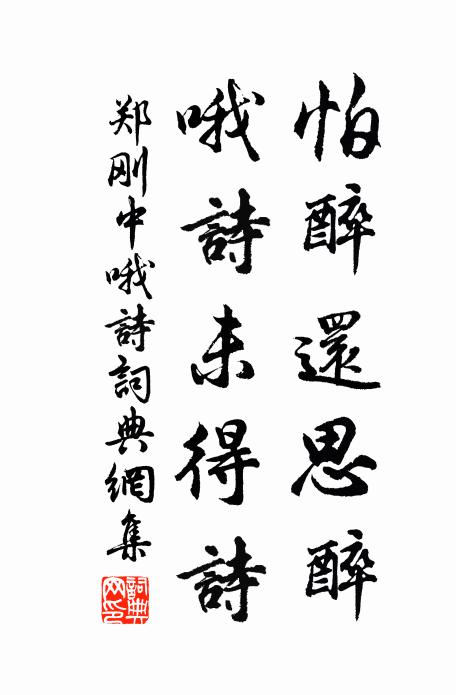 怕醉還思醉
哦詩未得詩
郑刚中哦詩詞典網集
詞典網印